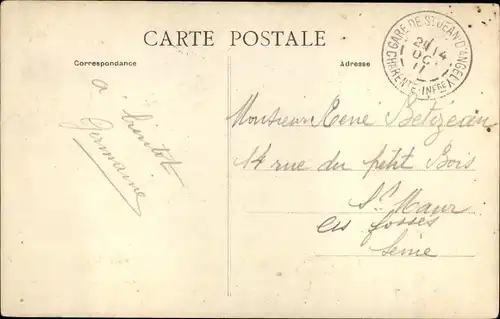 CARTE POSTALE
Correspondance
Adresse
GARE DE ST JEAN D'ANGELY
CHARENTE-INFRE
14
OC.
11
à bientôt
Germaine
Monsieur René Betizeau
14 rue du petit Bois
St Maur
les fosses
Seine